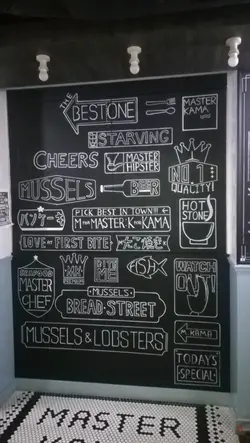 THE
BEST ONE
MASTER
KAMA
STARVING
CHEERS
MASTER
HIPSTER
NO.1
QUALITY!
MUSSELS
BEER
HOT
STONE
PICK BEST IN TOWN!!
M FOR MASTER K FOR KAMA
LOVE AT FIRST BITE
SEAFOOD
MASTER
CHEF
PREMIUM
BITE
ME
FISH
WATCH
OUT!
MUSSELS
BREAD STREET
MUSSELS & LOBSTERS
M.KAMA
TODAY'S
SPECIAL
MASTER